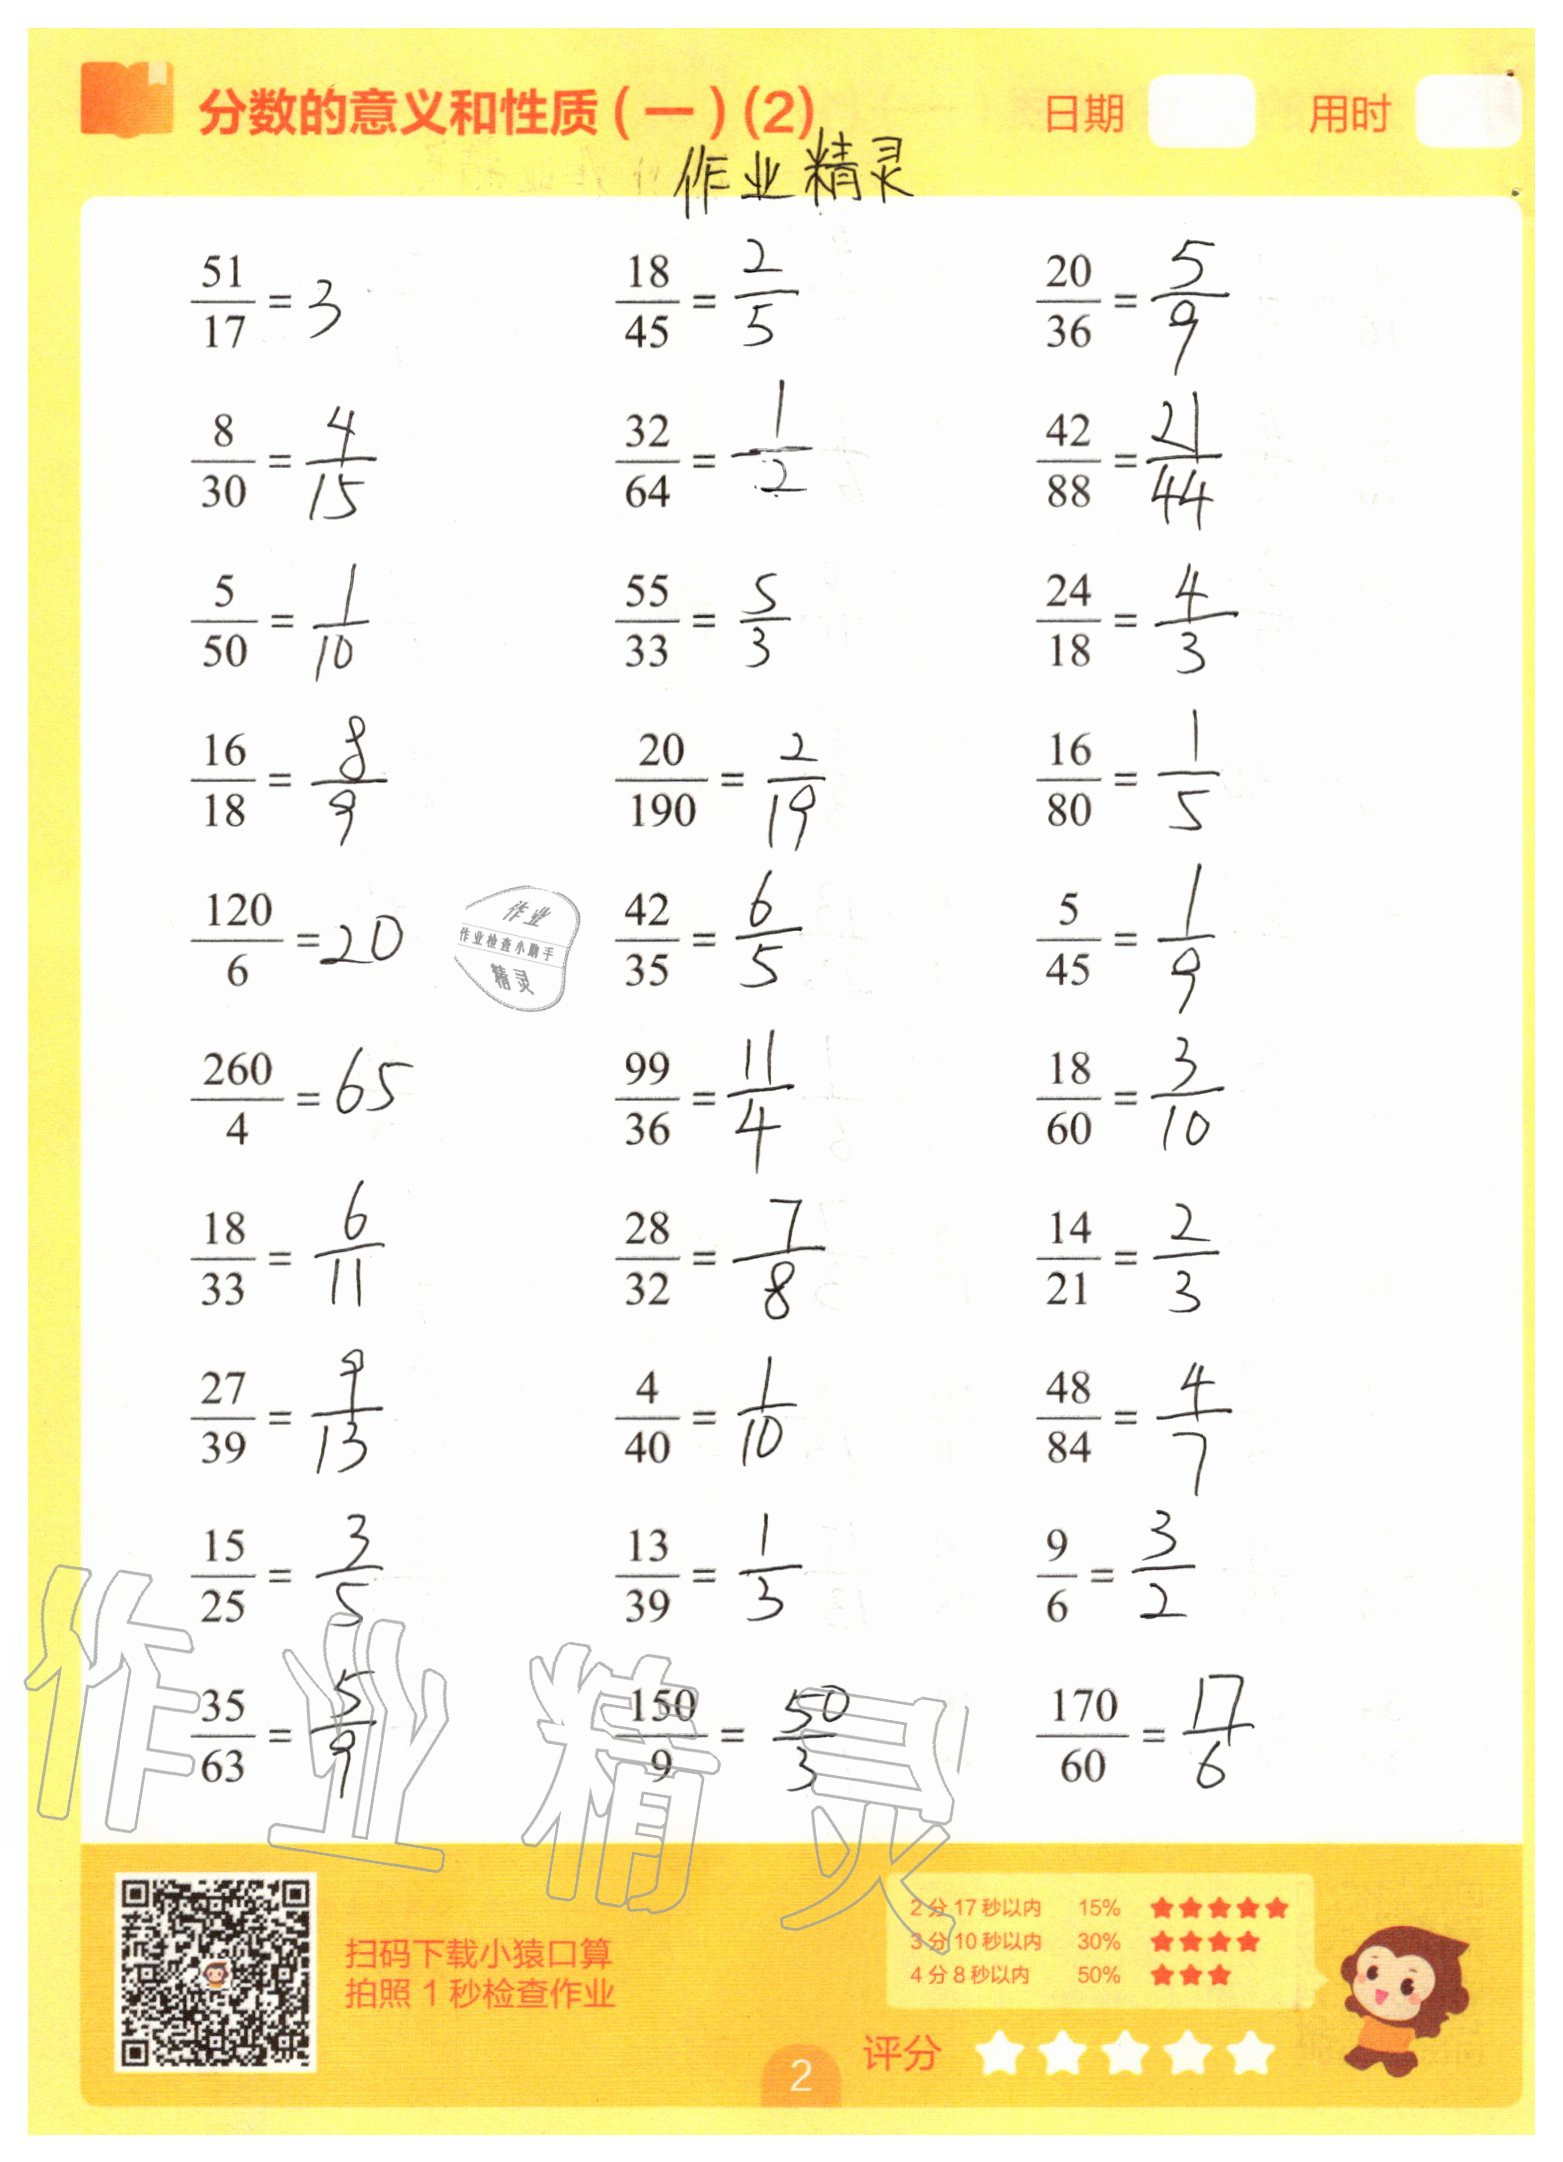 分数的意义和性质(一)(2) 日期 用时
作业精灵
51/17 = 3 18/45 = 2/5 20/36 = 5/9
8/30 = 4/15 32/64 = 1/2 42/88 = 21/44
5/50 = 1/10 55/33 = 5/3 24/18 = 4/3
16/18 = 8/9 20/190 = 2/19 16/80 = 1/5
120/6 = 20 42/35 = 6/5 5/45 = 1/9
作业
作业检查小助手
精灵
260/4 = 65 99/36 = 11/4 18/60 = 3/10
18/33 = 6/11 28/32 = 7/8 14/21 = 2/3
27/39 = 9/13 4/40 = 1/10 48/84 = 4/7
15/25 = 3/5 13/39 = 1/3 9/6 = 3/2
35/63 = 5/9 150/9 = 50/3 170/60 = 17/6
作业精灵
扫码下载小猿口算
拍照1秒检查作业
2分17秒以内 15% ★★★★★
3分10秒以内 30% ★★★★
4分8秒以内 50% ★★★
评分 ★★★★★
2